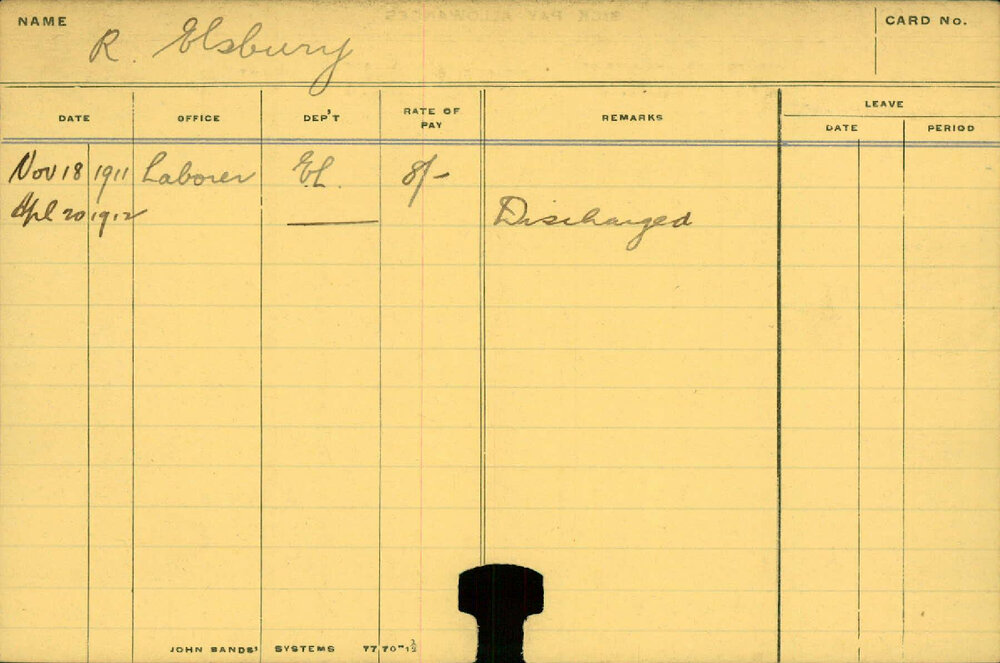 NAME R. Elsbury CARD No.
LEAVE
DATE OFFICE DEP'T RATE OF PAY REMARKS DATE PERIOD
Nov 18 1911 Laborer EL. 8/-
Apl 20 1912 Discharged
JOHN SANDS' SYSTEMS 7770